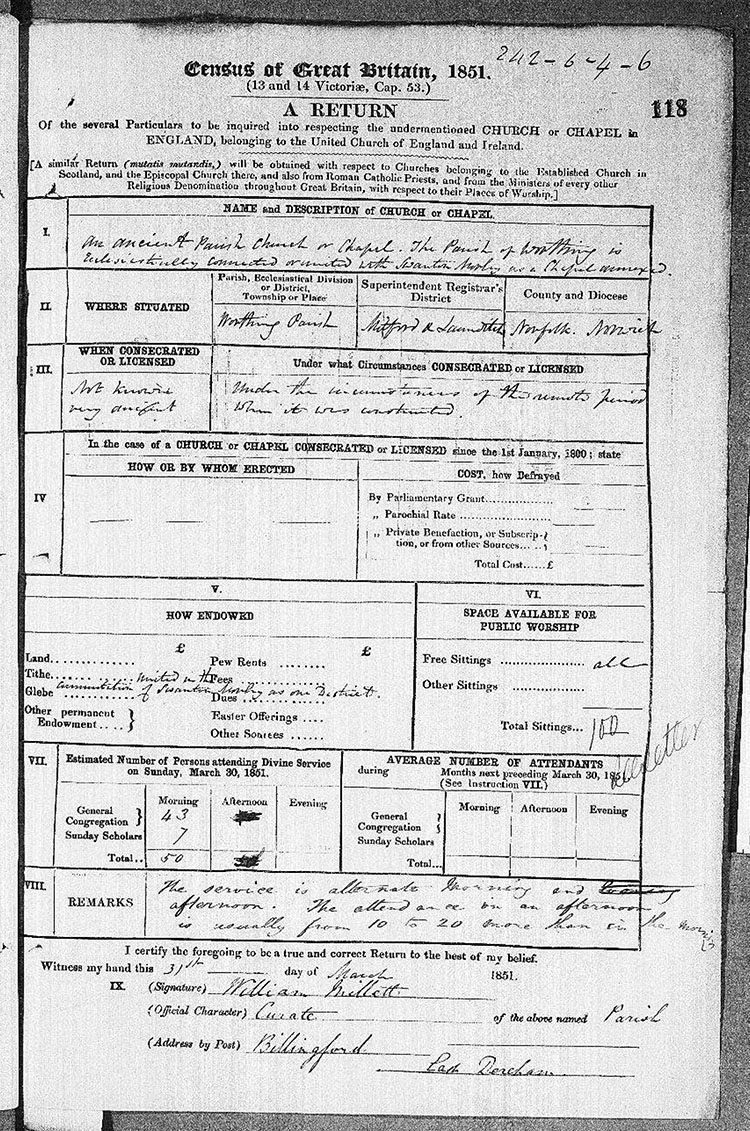 242-6-4-6
Census of Great Britain, 1851.
(13 and 14 Victoriæ, Cap. 53.)
118
A RETURN
Of the several Particulars to be inquired into respecting the undermentioned CHURCH or CHAPEL in
ENGLAND, belonging to the United Church of England and Ireland.
[A similar Return (mutatis mutandis,) will be obtained with respect to Churches belonging to the Established Church in
Scotland, and the Episcopal Church there, and also from Roman Catholic Priests, and from the Ministers of every other
Religious Denomination throughout Great Britain, with respect to their Places of Worship.]
NAME and DESCRIPTION of CHURCH or CHAPEL.
I.
An ancient Parish Church or Chapel. The Parish of Worthing is
Ecclesiastically connected or united with Swanton Morley as a Chapel annexed.
II.
WHERE SITUATED
Parish, Ecclesiastical Division
or District,
Township or Place
Superintendent Registrar's
District
County and Diocese
Worthing Parish
Mitford & Launditch
Norfolk. Norwich
III.
WHEN CONSECRATED
OR LICENSED
Under what Circumstances CONSECRATED or LICENSED
Not known
very ancient
Under the circumstances of the remote period
when it was constructed.
IV
In the case of a CHURCH or CHAPEL CONSECRATED or LICENSED since the 1st January, 1800; state
HOW OR BY WHOM ERECTED
COST, how Defrayed
By Parliamentary Grant
„ Parochial Rate
„ Private Benefaction, or Subscrip-
tion, or from other Sources
Total Cost...... £
V.
HOW ENDOWED
£
£
Land
Tithe
united in the
Glebe
commutation of Swanton Morley as one District.
Other permanent
Endowment
Pew Rents
Fees
Dues
Easter Offerings
Other Sources
VI.
SPACE AVAILABLE FOR
PUBLIC WORSHIP
Free Sittings all
Other Sittings
Total Sittings... 100
letter
VII.
Estimated Number of Persons attending Divine Service
on Sunday, March 30, 1851.
Morning Afternoon Evening
General
Congregation } 43
Sunday Scholars 7
Total.. 50
AVERAGE NUMBER OF ATTENDANTS
during Months next preceding March 30, 1851
(See Instruction VII.)
Morning Afternoon Evening
General
Congregation }
Sunday Scholars
Total...
VIII.
REMARKS
The service is alternate Morning and
afternoon. The attendance in an afternoon
is usually from 10 to 20 more than in the morng
I certify the foregoing to be a true and correct Return to the best of my belief.
Witness my hand this 31st day of March 1851.
IX.
(Signature) William Millett
(Official Character) Curate of the above named Parish
(Address by Post) Billingford
East Dereham